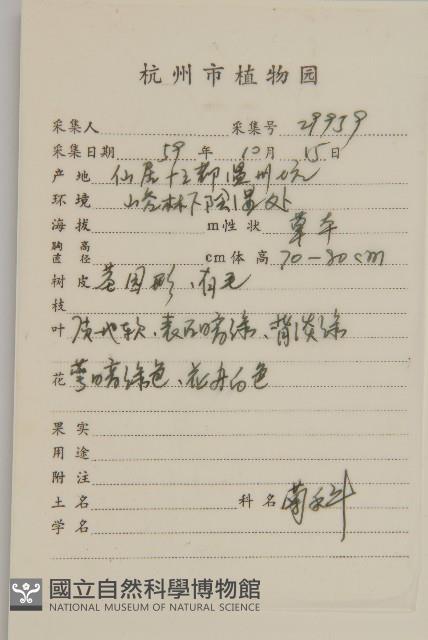 杭州市植物园
采集人 采集号 29959
采集日期 59 年 10 月 15 日
产地 仙居十三都温州坑
环境 山谷林下阴湿处
海拔 m 性状 草本
胸高直径 cm 体高 70-80cm
树皮 茎圆形、有毛
枝
叶 质地软、表面暗绿、背淡绿
花 萼暗绿色、花丹白色
果实
用途
附注
土名 科名 菊科
学名
國立自然科學博物館
NATIONAL MUSEUM OF NATURAL SCIENCE